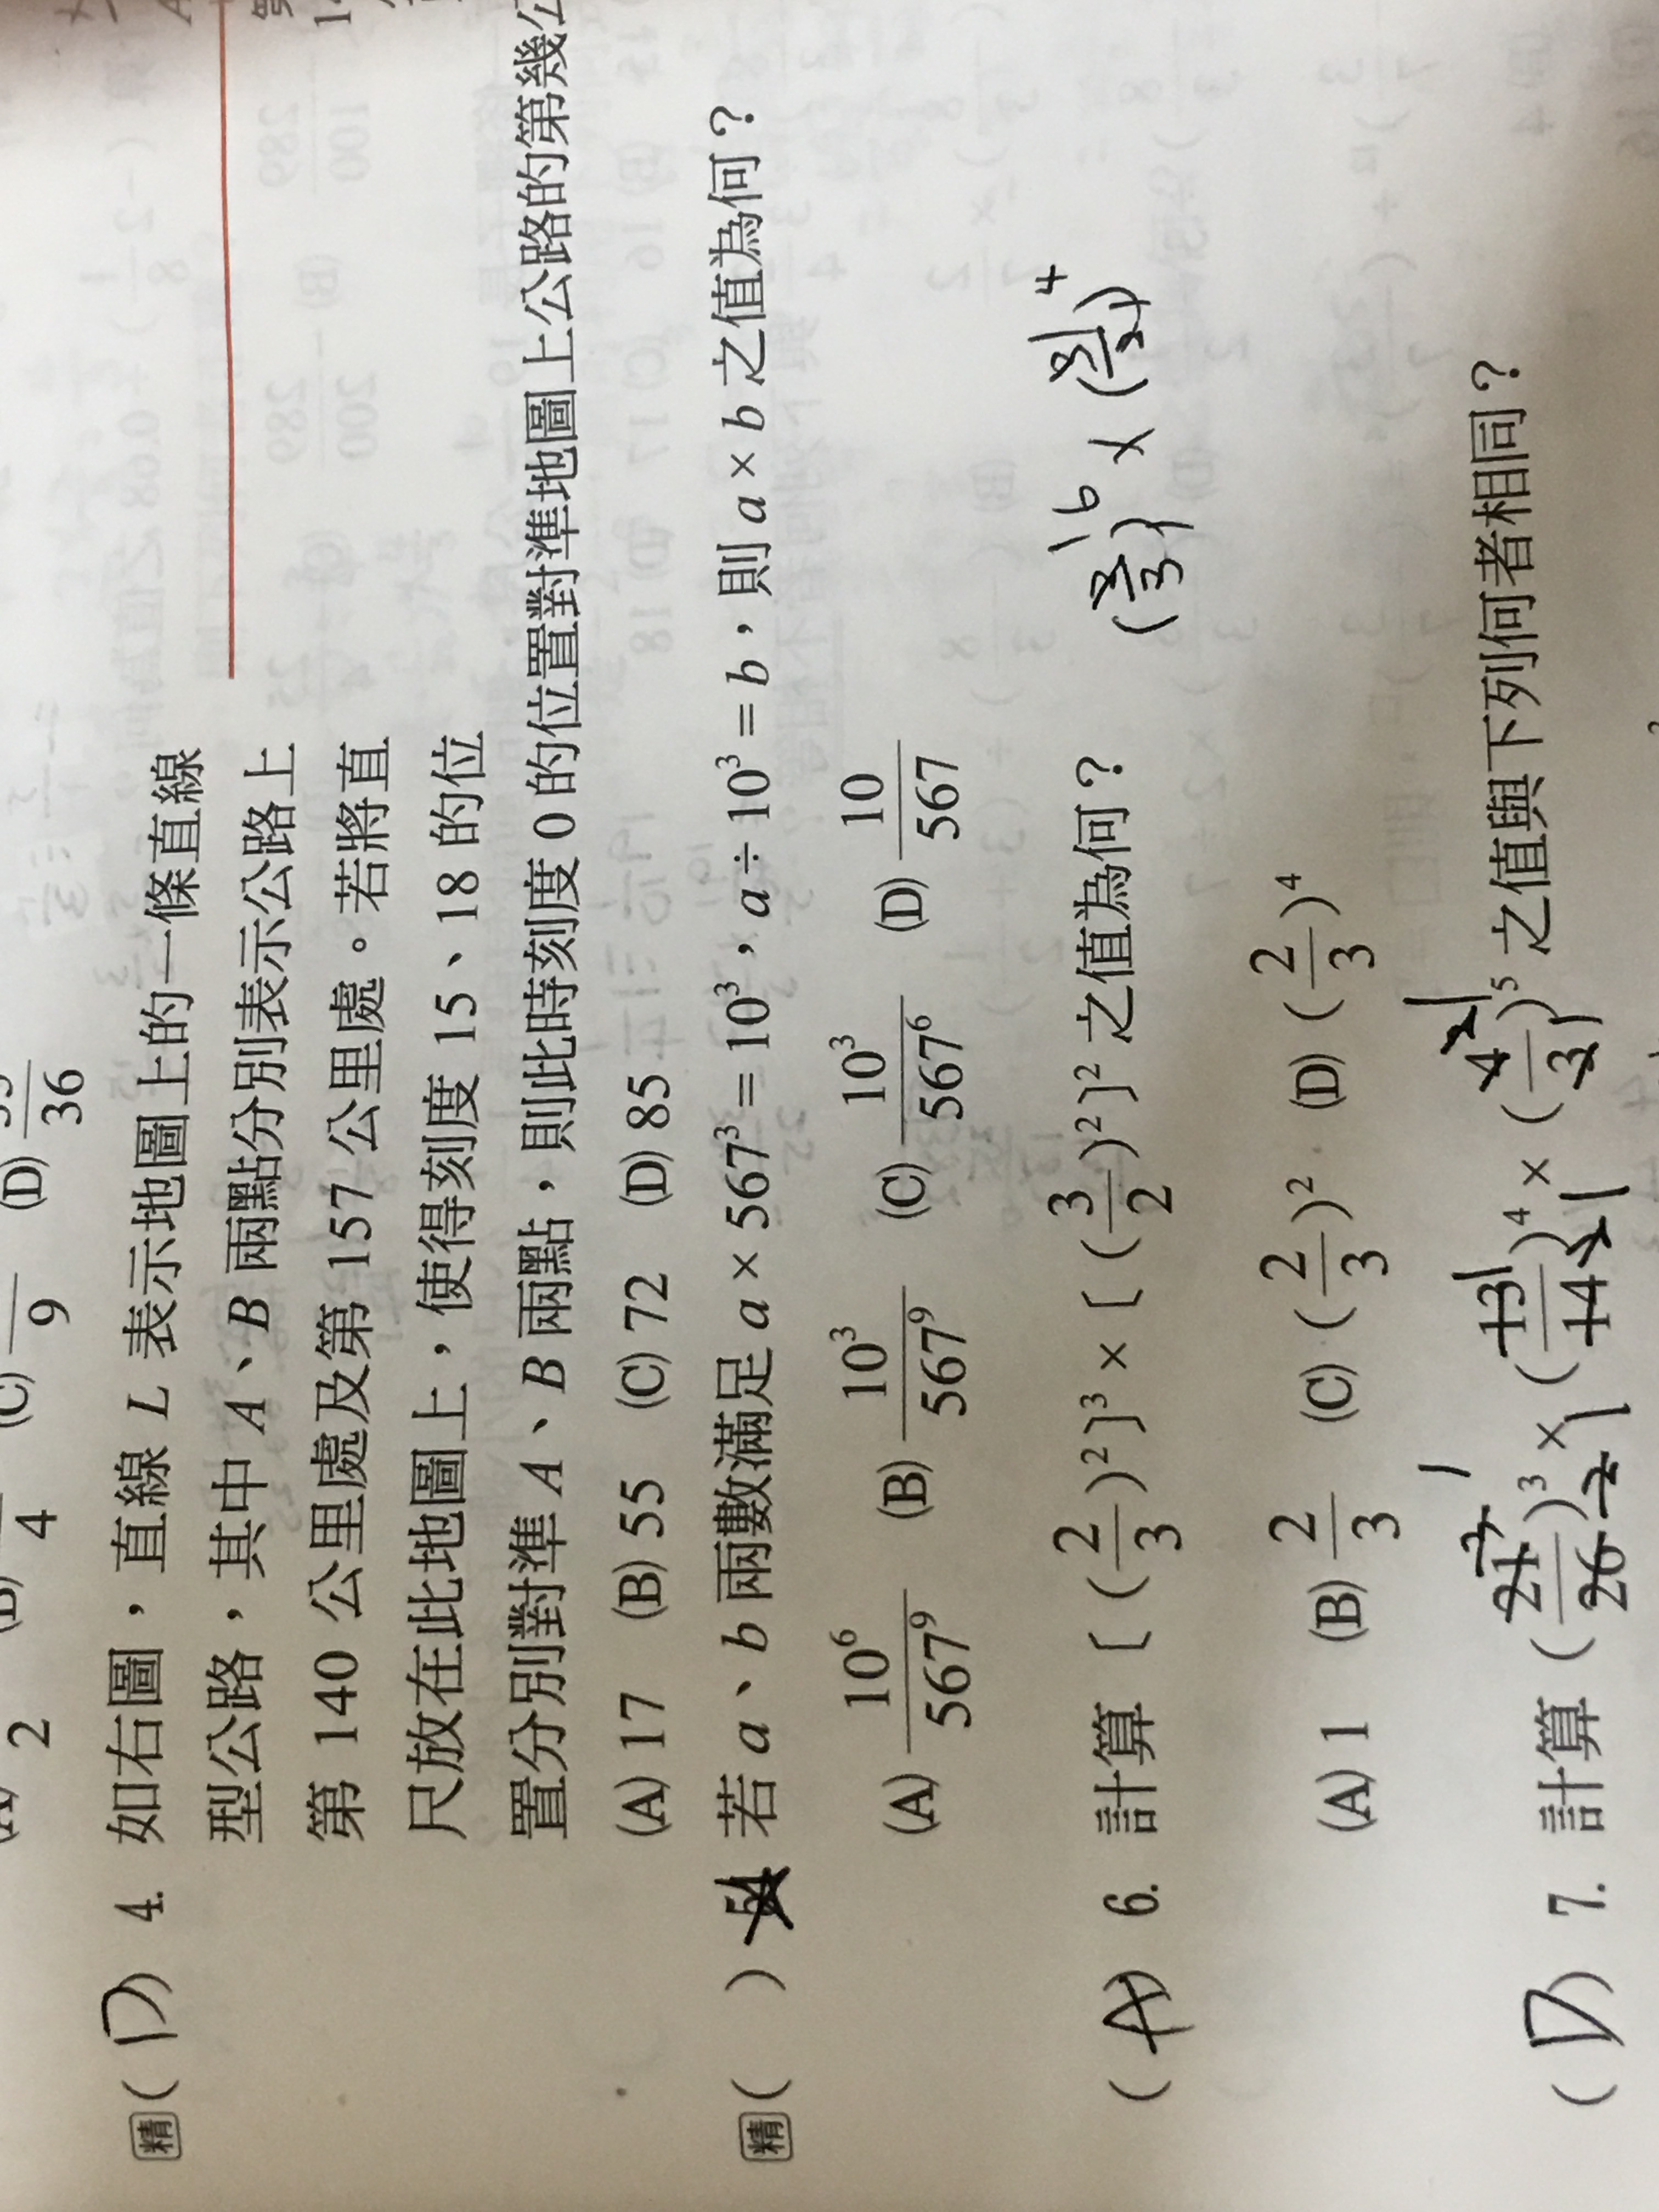 (D) 36
(C) 9
4
2
精 ( D ) 4. 如右圖，直線 L 表示地圖上的一條直線
型公路，其中 A、B 兩點分別表示公路上
第 140 公里處及第 157 公里處。若將直
尺放在此地圖上，使得刻度 15、18 的位
置分別對準 A、B 兩點，則此時刻度 0 的位置對準地圖上公路的第幾公
(A) 17 (B) 55 (C) 72 (D) 85
精 ( ) 若 a、b 兩數滿足 a × 567³ = 10³，a ÷ 10³ = b，則 a × b 之值為何？
(A) 10⁶/567⁹ (B) 10³/567⁹ (C) 10³/567⁶ (D) 10/567
( A ) 6. 計算〔(2/3)²〕³ ×〔(3/2)²〕² 之值為何？
(A) 1 (B) 2/3 (C) (2/3)² (D) (2/3)⁴
( D ) 7. 計算 (21/26)³ × (13/14)⁴ × (4/3)⁵ 之值與下列何者相同？